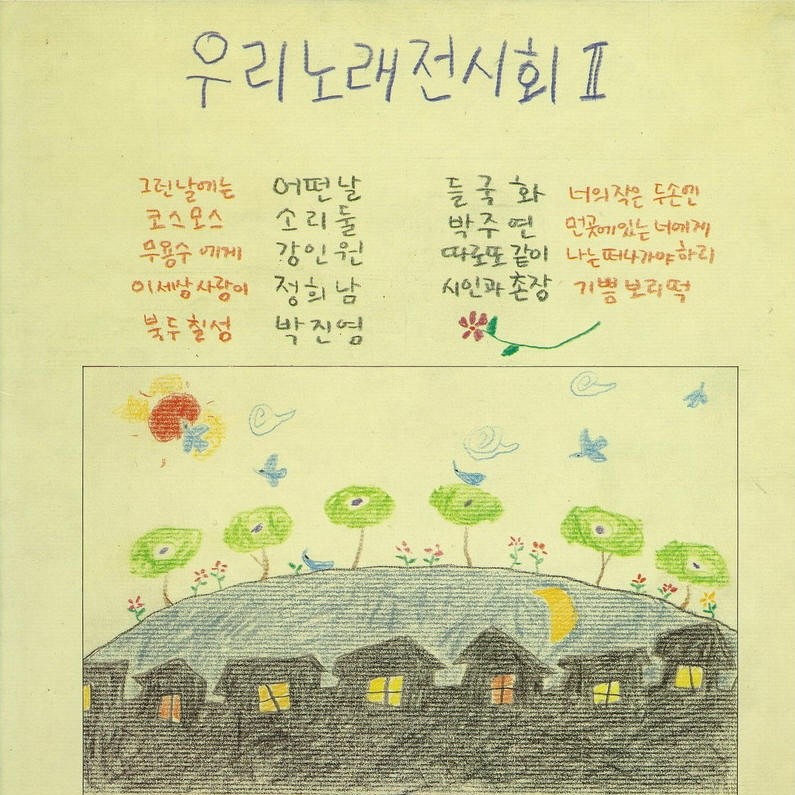 우리노래전시회 II
그런날에는 어떤날
코스모스 소리둘
무용수에게 강인원
이세상사랑이 정희남
북두칠성 박진영
들국화 너의작은 두손엔
박주연 먼곳에있는너에게
따로또같이 나는떠나가야하리
시인과촌장 기쁨보리떡